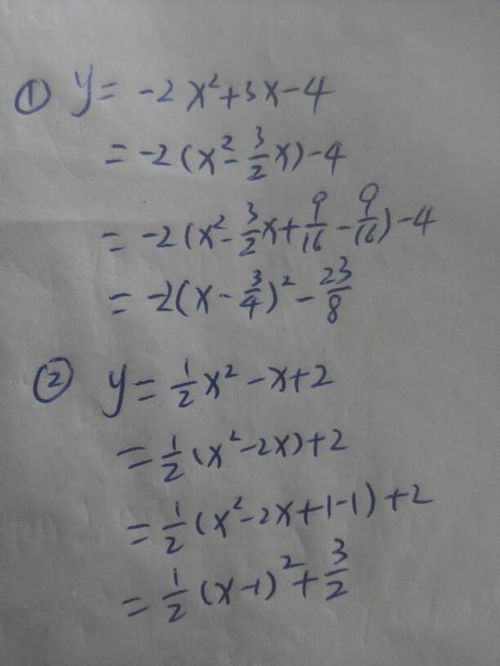 ① y = -2x²+3x-4
= -2(x²-3/2x)-4
= -2(x²-3/2x+9/16-9/16)-4
= -2(x-3/4)²-23/8
② y = 1/2x²-x+2
= 1/2(x²-2x)+2
= 1/2(x²-2x+1-1)+2
= 1/2(x-1)²+3/2